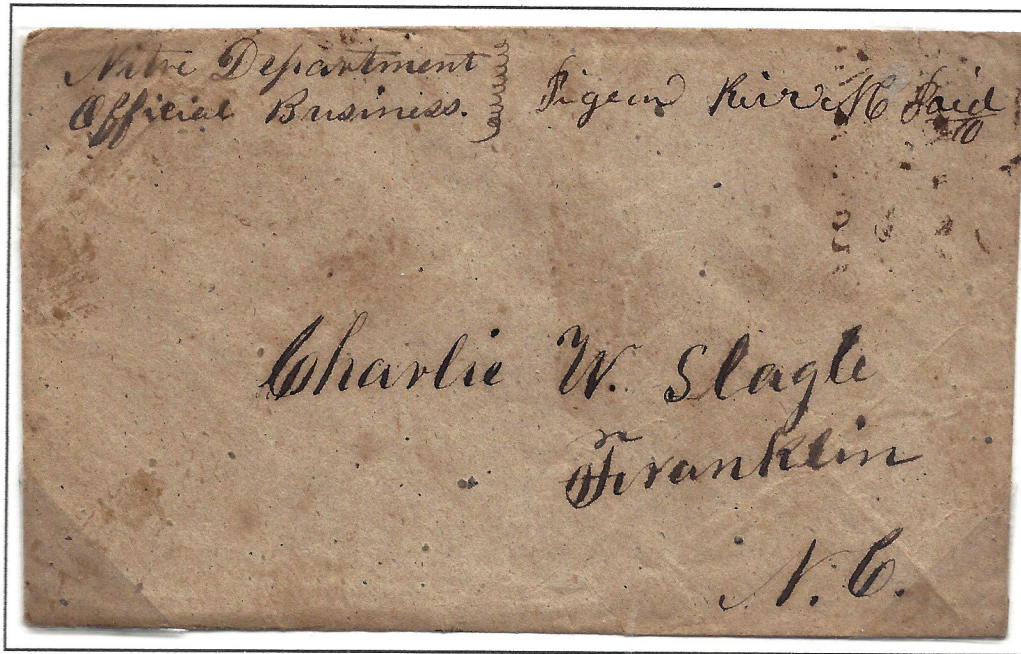 Nitre Department
Official Business.
Pigeon River NC Paid
10
Charlie W. Slagle
Franklin
N. C.